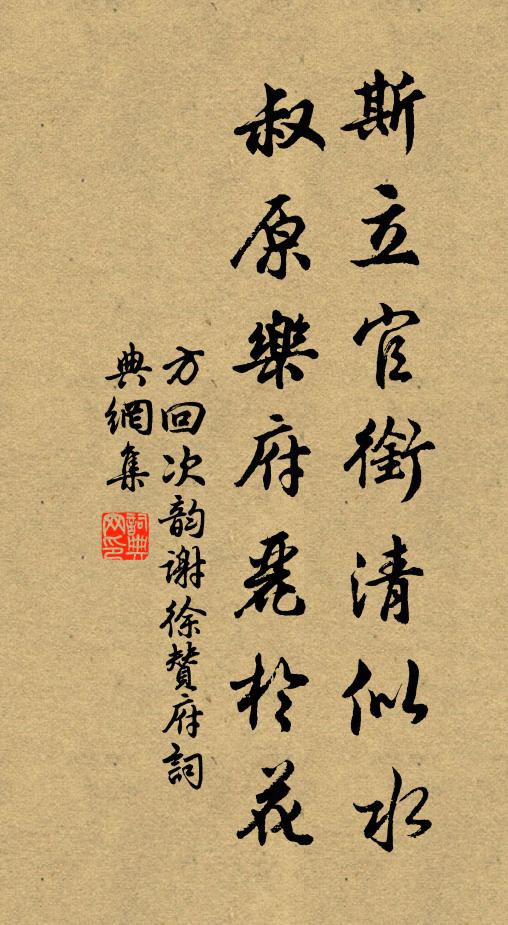 斯立官銜清似水
叔原樂府麗於花
方回次韵謝徐贊府詞
典網集
詞典網印